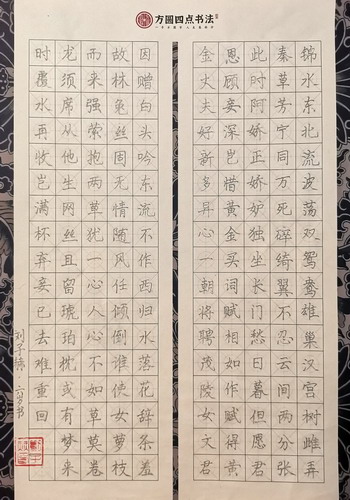 方圓四点书法
锦水东北流波荡双鸳鸯雄巢汉宫树雌弄
秦草芳宁同万死碎绮翼不忍云间两分张
此时阿娇正娇妒独坐长门愁日暮但愿君
恩顾妾深岂惜黄金买词赋相如作赋得黄
金丈夫好新多异心一朝将聘茂陵女文君
因赠白头吟东流不作西归水落花辞条羞
故林兔丝固无情随风任倾倒谁使女萝枝
而来强萦抱两草犹一心人心不如草莫卷
龙须席从他生网丝且留琥珀枕或有梦来
时覆水再收岂满杯弃妾已去难重回
刘子 六岁书